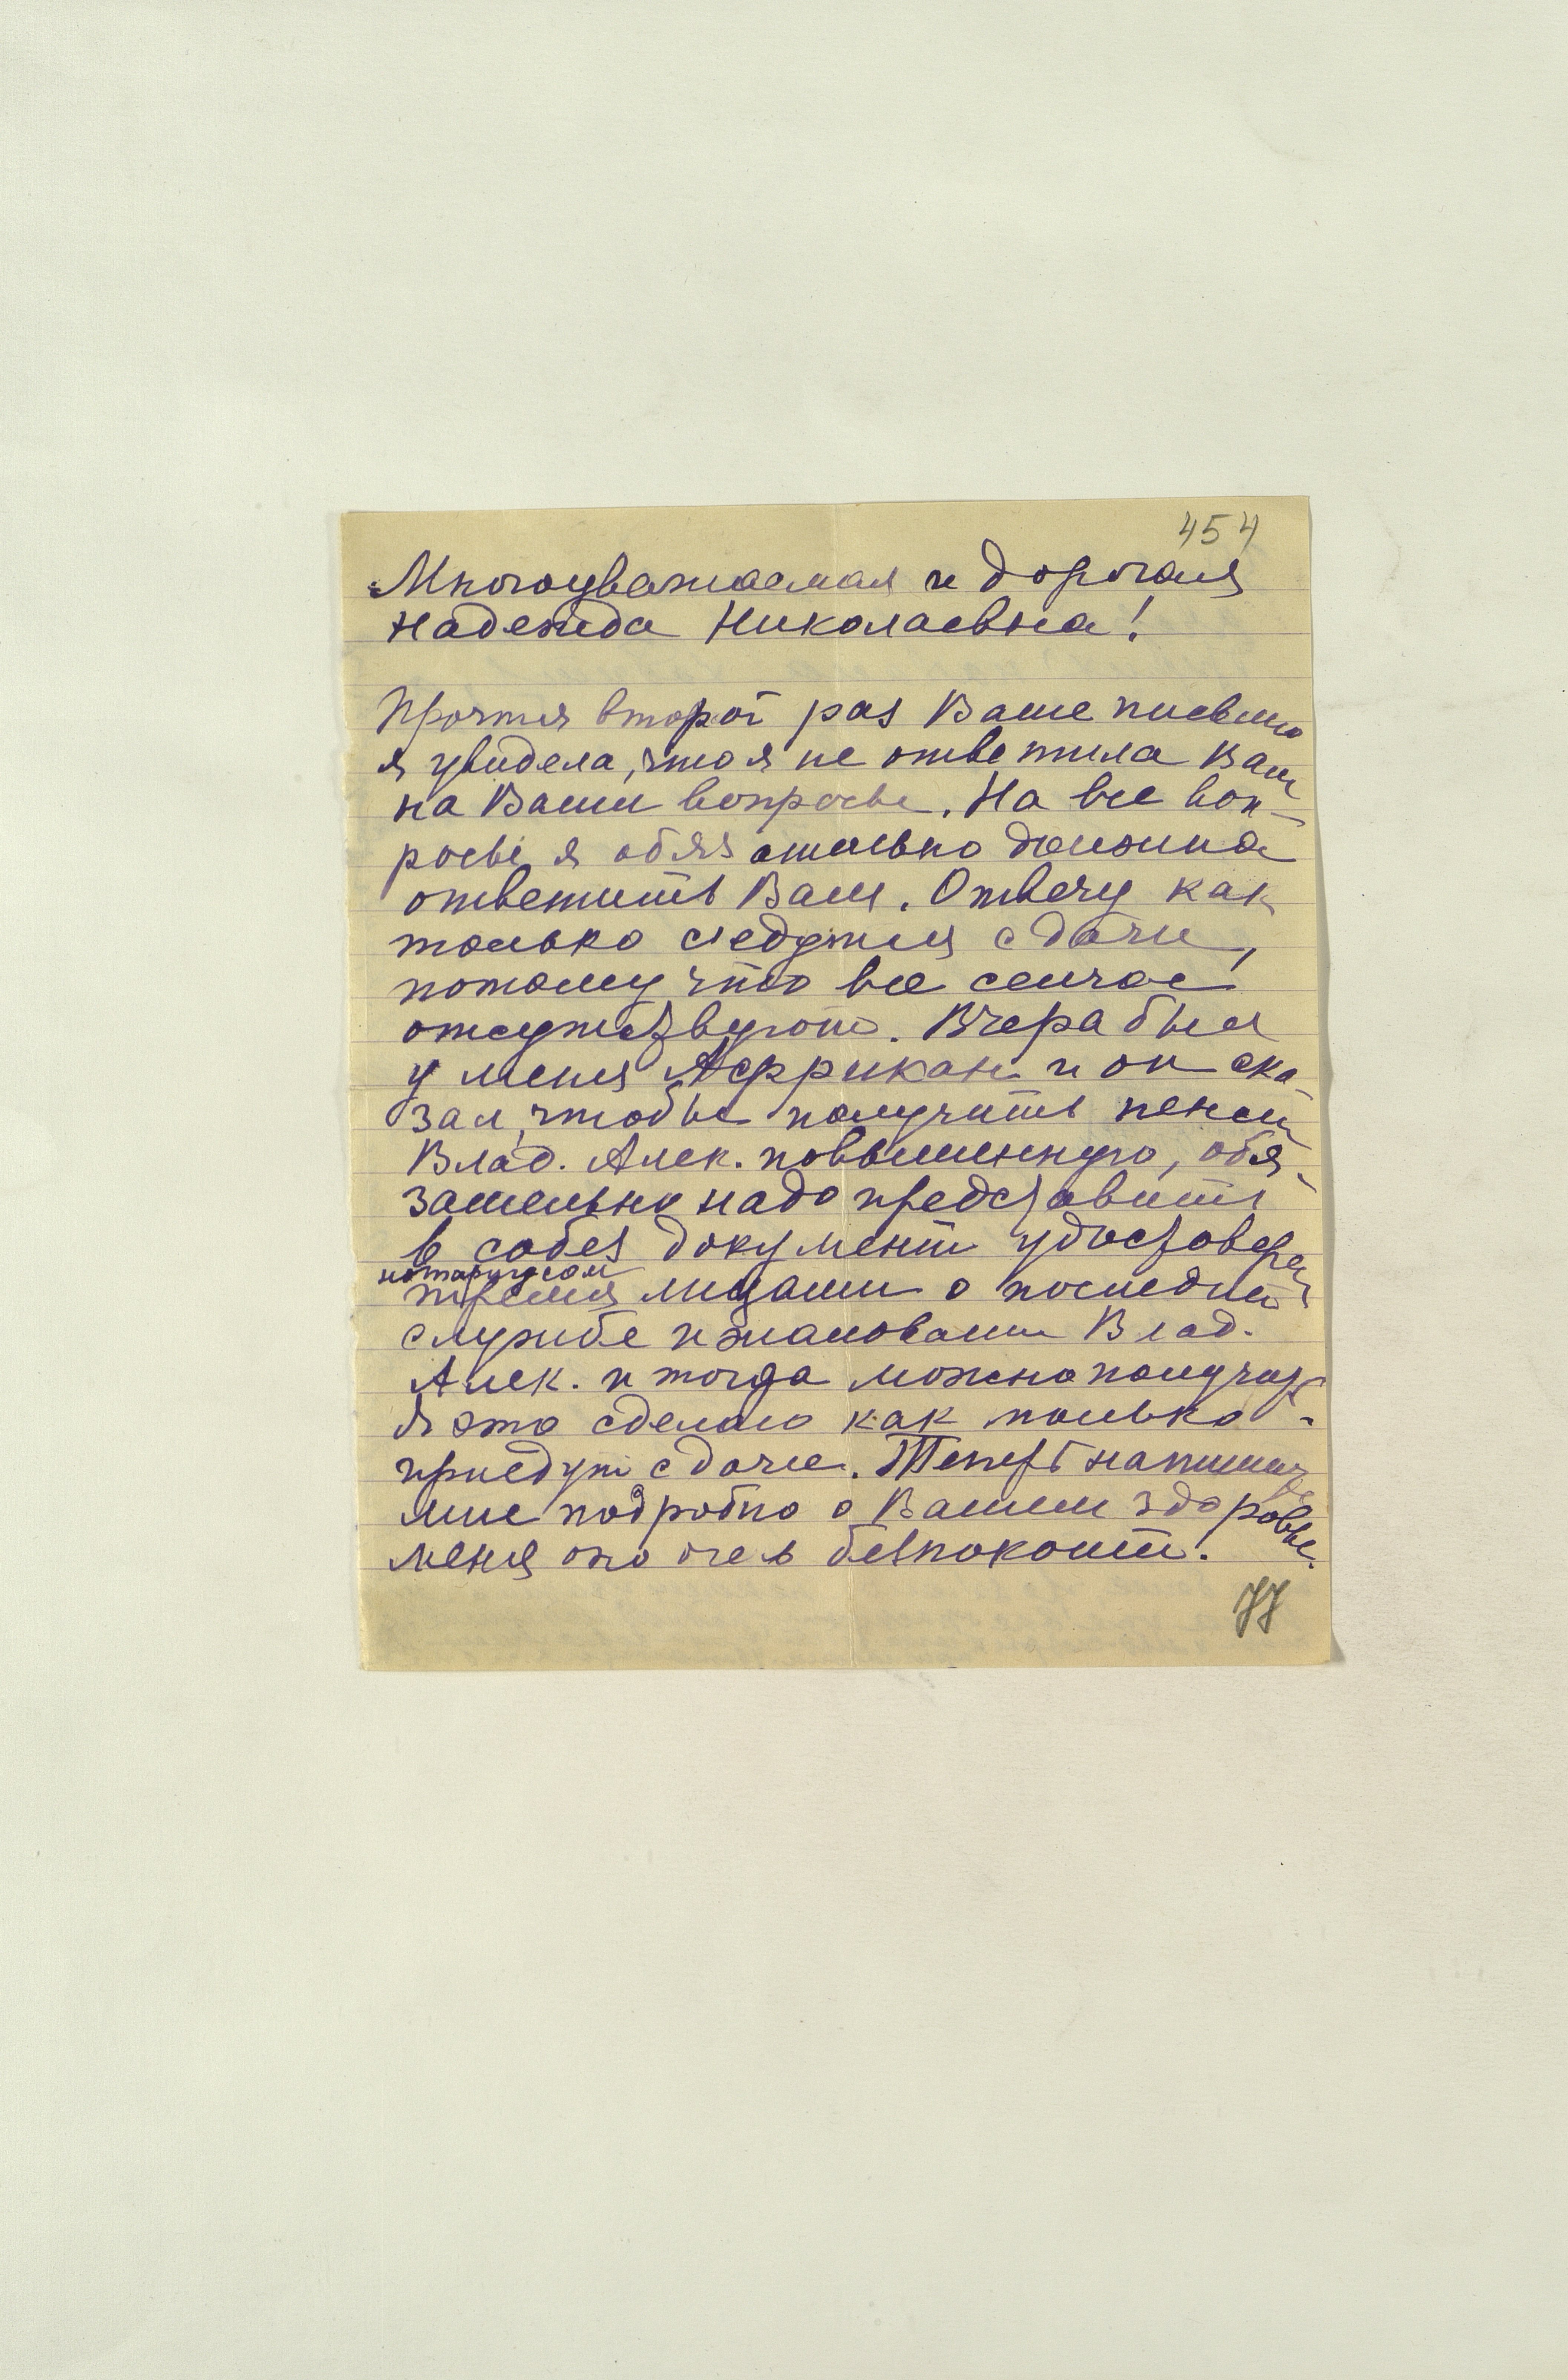 454
Многоуважаемая и дорогая
Надежда Николаевна!
Прочтя второй раз Ваше письмо
я увидела, что я не ответила Вам
на Ваши вопросы. На все воп-
росы я обязательно должна
ответить Вам. Отвечу как
только съедутся с дачи,
потому что все сейчас
отсутствуют. Вчера был
у меня Аффрикан и он ска-
зал, чтобы получить пенсию
Влад. Алек. повышенную, обя-
зательно надо представить
в собез документ удостоверен
нотариусом
тремя лицами о последней
службе и жаловании Влад.
Алек. и тогда можно получить
Я это сделаю как только
приедут с дачи. Теперь напишите
мне подробно о Вашем здоровье.
меня оно очень безпокоит.
77